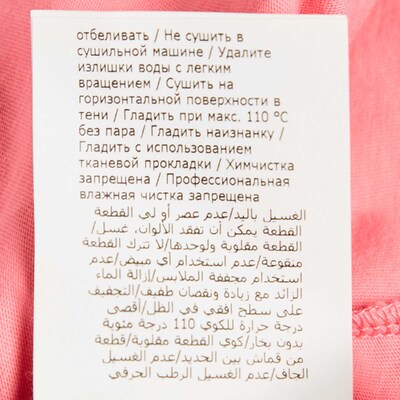 отбеливать / Не сушить в
сушильной машине / Удалите
излишки воды с легким
вращением / Сушить на
горизонтальной поверхности в
тени / Гладить при макс. 110 °C
без пара / Гладить наизнанку /
Гладить с использованием
тканевой прокладки / Химчистка
запрещена / Профессиональная
влажная чистка запрещена
الغسيل باليد/عدم عصر أو لي القطعة
القطعة يمكن أن تفقد الألوان، غسل/
القطعة مقلوبة ولوحدها/لا تترك القطعة
منقوعة/عدم استخدام أي مبيض/عدم
استخدام مجففة الملابس/ازالة الماء
الزائد مع زيادة ونقصان طفيف/التجفيف
على سطح افقي في الظل/أقصى
درجة حرارة للكوي 110 درجة مئوية
بدون بخار/كوي القطعة مقلوبة/قطعة
من قماش بين الحديد/عدم الغسيل
الجاف/عدم الغسيل الرطب الحرفي